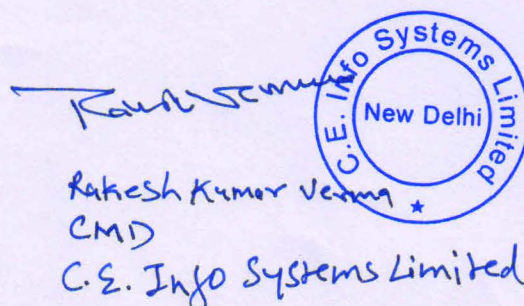 C.E. Info Systems Limited
New Delhi
Rakesh Kumar Verma
CMD
C.E. Info Systems Limited